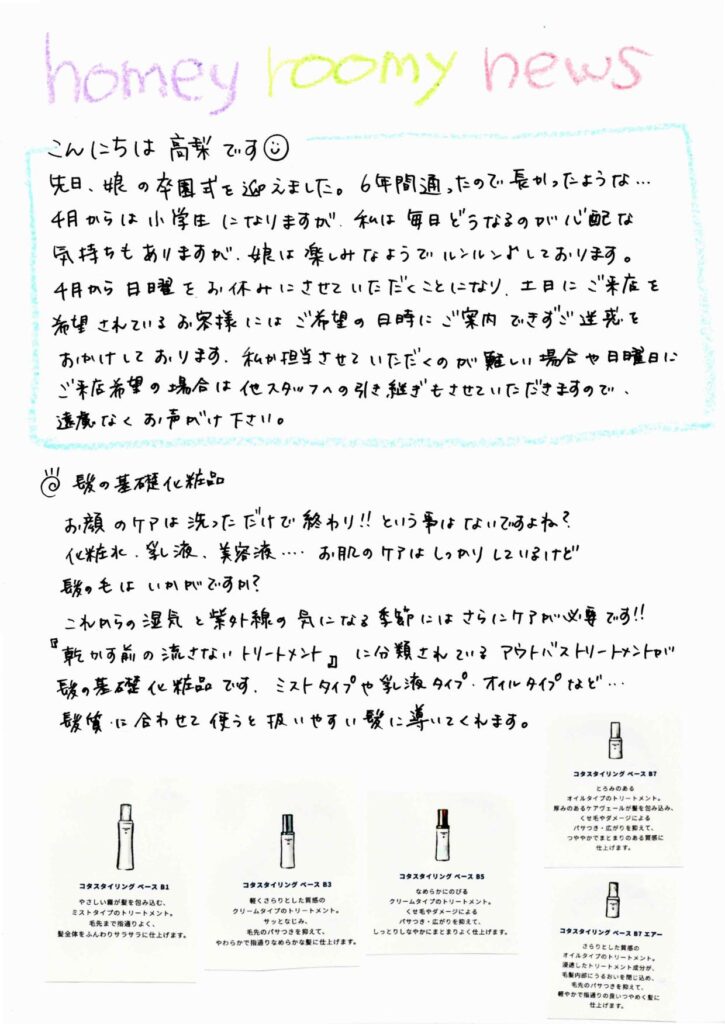 homey roomy news
こんにちは 高梨です
先日、娘の卒園式を迎えました。6年間通ったので長かったような…
4月からは小学生になりますが、私は毎日どうなるのか心配な
気持ちもありますが、娘は楽しみなようでルンルン♪しております。
4月から日曜をお休みにさせていただくことになり、土日にご来店を
希望されているお客様にはご希望の日時にご案内できずご迷惑を
おかけしております。私が担当させていただくのが難しい場合や日曜日に
ご来店希望の場合は他スタッフへの引き継ぎもさせていただきますので、
遠慮なくお声がけ下さい。
髪の基礎化粧品
お顔のケアは洗っただけで終わり!!という事はないですよね?
化粧水、乳液、美容液…. お肌のケアはしっかりしているけど
髪の毛はいかがですか?
これからの湿気と紫外線の気になる季節にはさらにケアが必要です!!
『乾かす前の流さないトリートメント』に分類されているアウトバストリートメントが
髪の基礎化粧品です。ミストタイプや乳液タイプ・オイルタイプなど…
髪質に合わせて使うと扱いやすい髪に導いてくれます。
コタスタイリング ベース B1
やさしい霧が髪を包み込む、
ミストタイプのトリートメント。
毛先まで指通りよく、
髪全体をふんわりサラサラに仕上げます。
コタスタイリング ベース B3
軽くさらりとした質感の
クリームタイプのトリートメント。
サッとなじみ、
毛先のパサつきを抑えて、
やわらかで指通りなめらかな髪に仕上げます。
コタスタイリング ベース B5
なめらかにのびる
クリームタイプのトリートメント。
くせ毛やダメージによる
パサつき・広がりを抑えて、
しっとりしなやかにまとまりよく仕上げます。
コタスタイリング ベース B7
とろみのある
オイルタイプのトリートメント。
厚みのあるケアヴェールが髪を包み込み、
くせ毛やダメージによる
パサつき・広がりを抑えて、
つややかでまとまりのある質感に
仕上げます。
コタスタイリング ベース B7 エアー
さらりとした質感の
オイルタイプのトリートメント。
浸透したトリートメント成分が、
毛髪内部にうるおいを閉じ込め、
毛先のパサつきを抑えて、
軽やかで指通りの良いつやめく髪に
仕上げます。